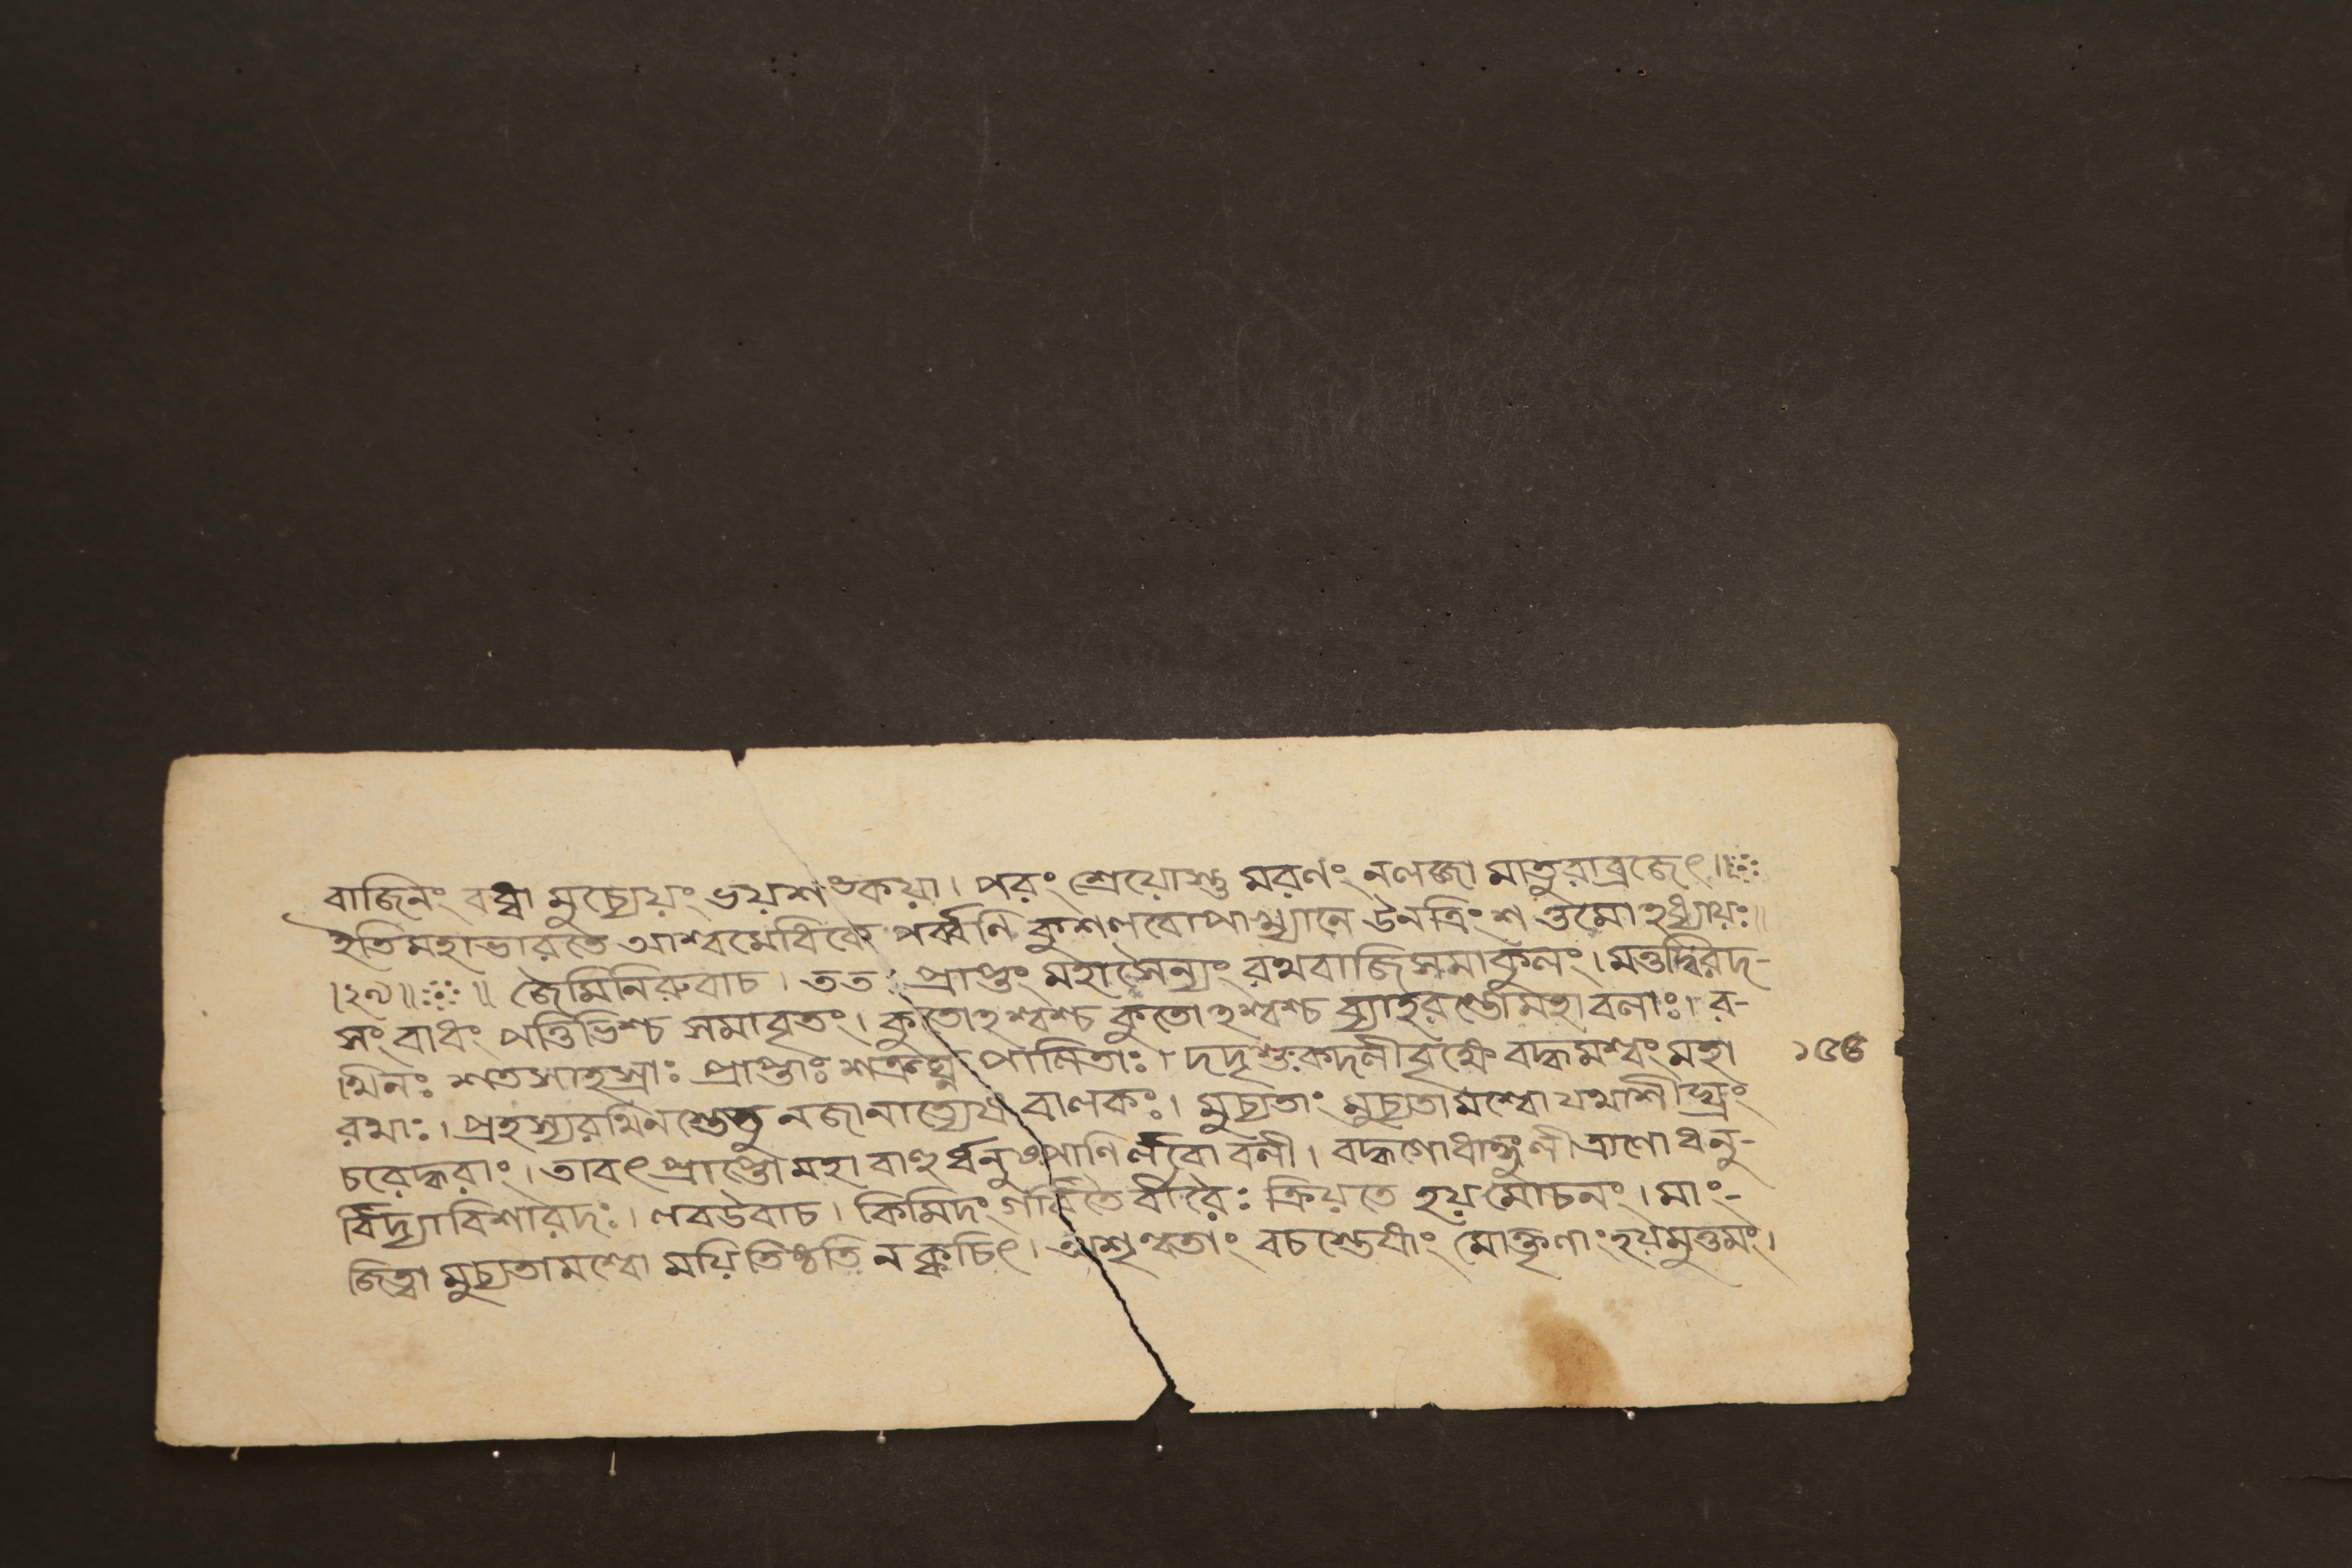 বাজিনং বদ্ধ্বা মুচ্যেয়ং ভয়শঙ্কয়া। পরং শ্রেয়োস্তু মরণং নলজ্জা মাতুরাব্রজেৎ॥
ইতিমহাভারতে আশ্বমেধিকে পর্ব্বণি কুশলবোপাখ্যানে ঊনত্রিংশত্তমোঽধ্যায়ঃ॥
।২৯॥ ॥ জৈমিনিরুবাচ। ততঃ প্রাপ্তং মহাসৈন্যং রথবাজিসমাকুলং। মত্তদ্বিরদ-
সংবাধং পত্তিভিশ্চ সমাবৃতং। কুতোঽশ্বশ্চ কুতোঽশ্বশ্চ ব্যাহরন্তোমহাবলাঃ। র-
থিনঃ শতসাহস্রাঃ প্রাপ্তাঃ শত্রুঘ্ন পালিতাঃ। দদৃশুঃকদলীবৃক্ষে বদ্ধমশ্বং মহা ১৫৪
রথাঃ। প্রহস্যরথিনস্তেতু নজানাত্যেষ বালকঃ। মুচ্যতাং মুচ্যতামশ্বো যথাশীঘ্রং
চরেদ্ধরাং। তাবৎপ্রাপ্তো মহাবাহুর্ধনুষ্পাণির্লবো বলী। বদ্ধগোধাঙ্গুলীত্রাণো ধনু-
র্বিদ্যাবিশারদঃ। লবউবাচ। কিমিদং গর্বিতৈর্বীরৈঃ ক্রিয়তে হয়মোচনং। মাং-
জিত্বা মুচ্যতামশ্বো ময়ি তিষ্ঠতি নক্কচিৎ। অশৃণ্বতাং বচস্তেষাং মোক্তৃণাং হয়মুত্তমং।